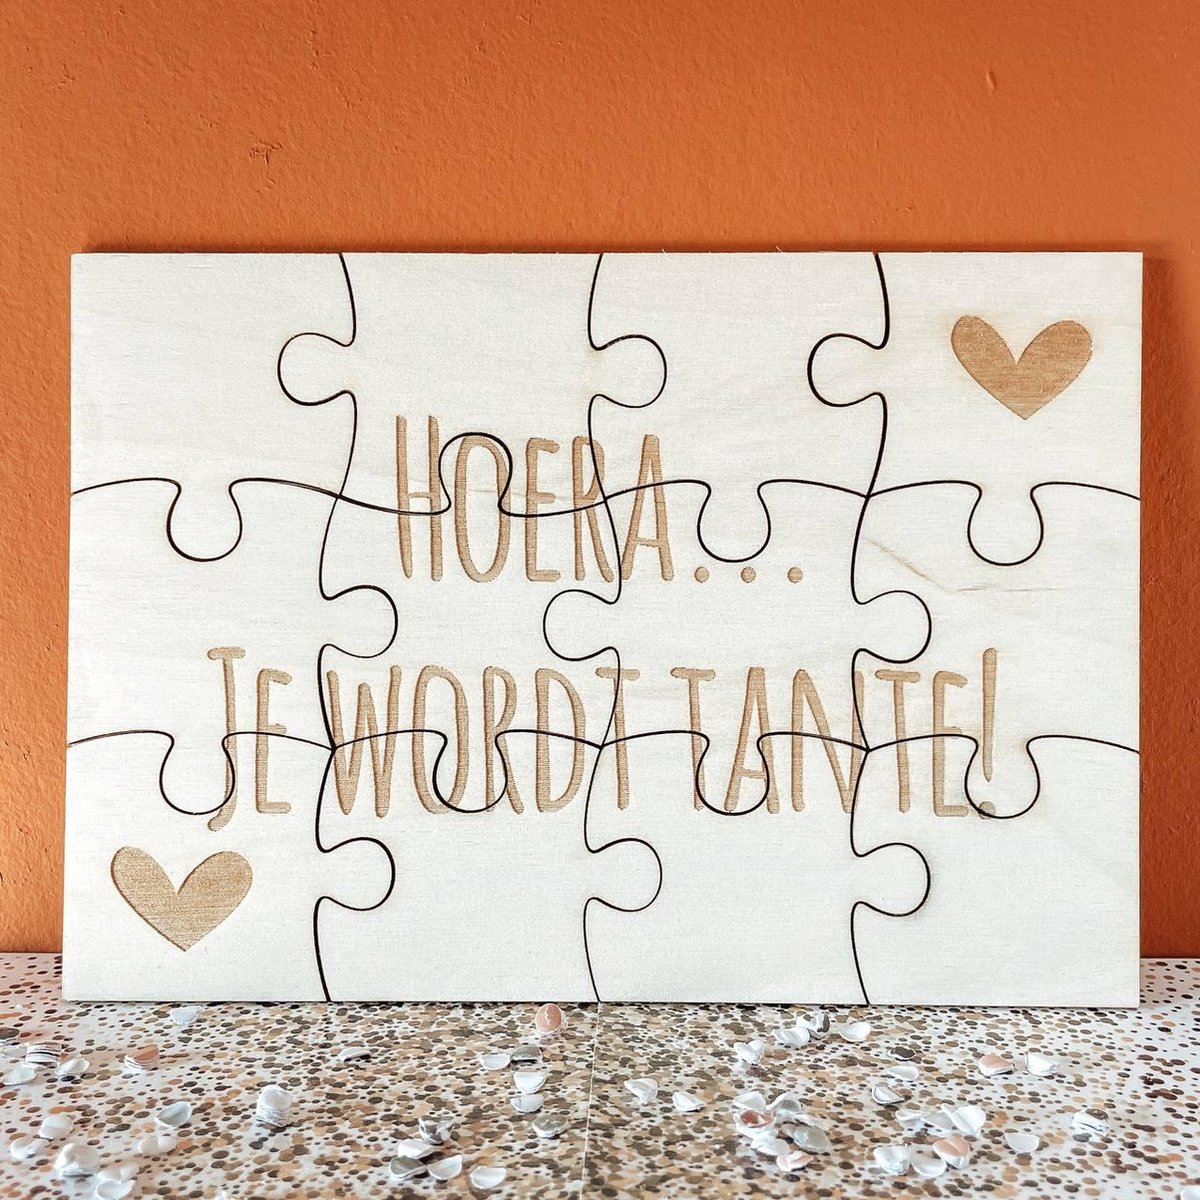 HOERA...
JE WORDT TANTE!